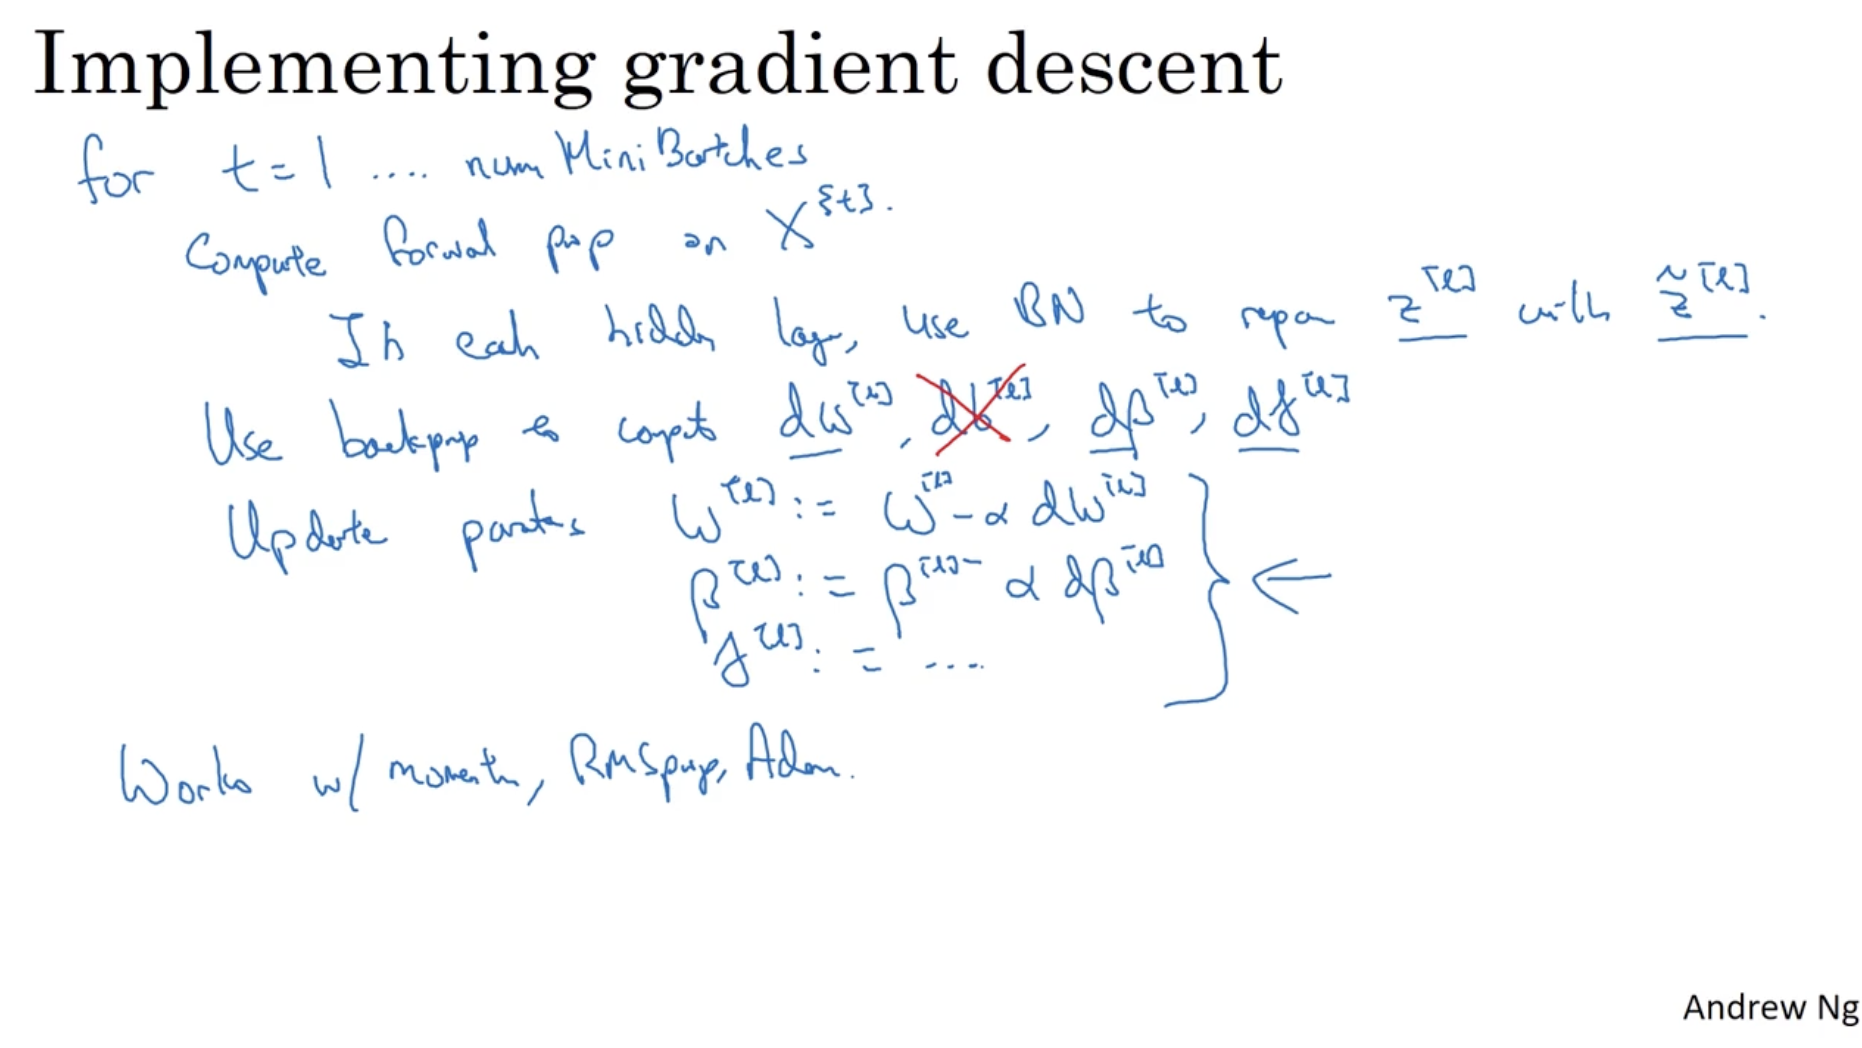 Implementing gradient descent
for t = 1 .... num Mini Batches
Compute forward prop on X^{t}.
In each hidden layer, use BN to replace z^[l] with z̃^[l].
Use backprop to compute dw^[l], db^[l], dβ^[l], dγ^[l]
Update parameters W^[l] := W^[l] - α dW^[l]
β^[l] := β^[l] - α dβ^[l]
γ^[l] := ....
Works w/ momentum, RMSprop, Adam.
Andrew Ng